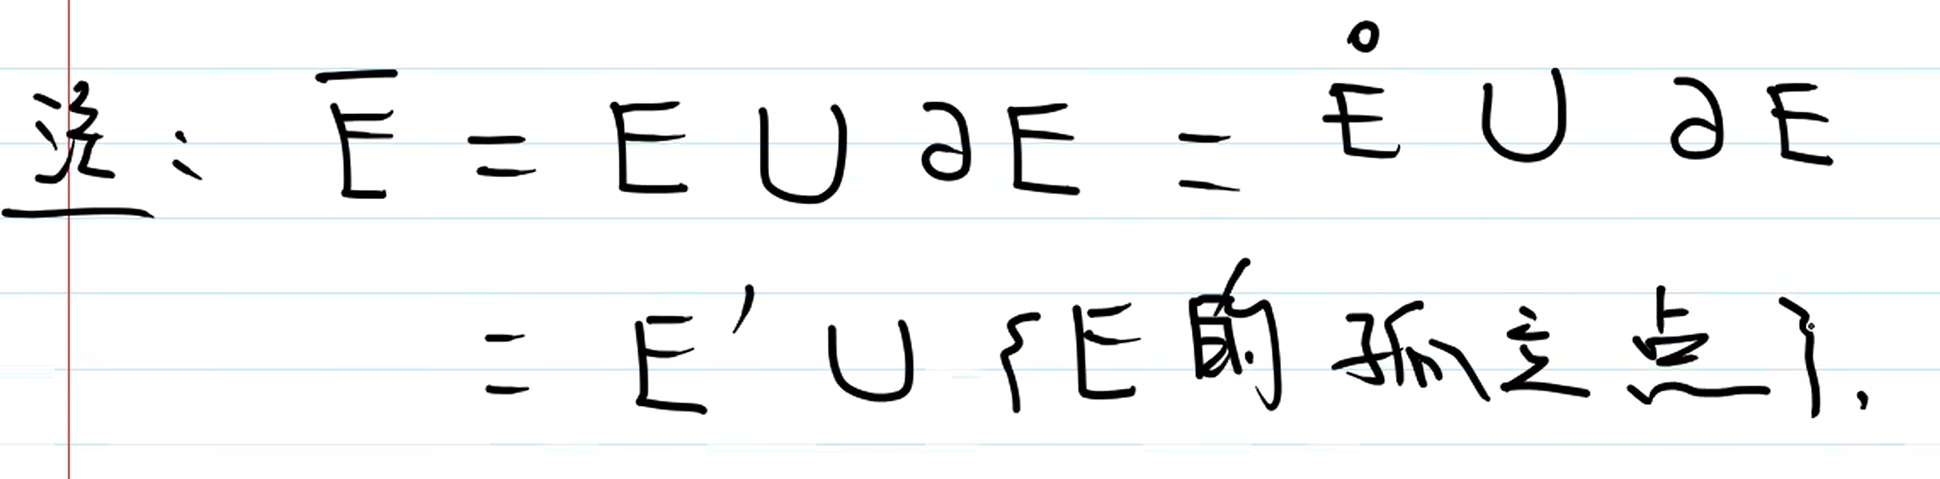 注: E̅ = E ∪ ∂E = E̊ ∪ ∂E
= E′ ∪ {E的孤立点}.